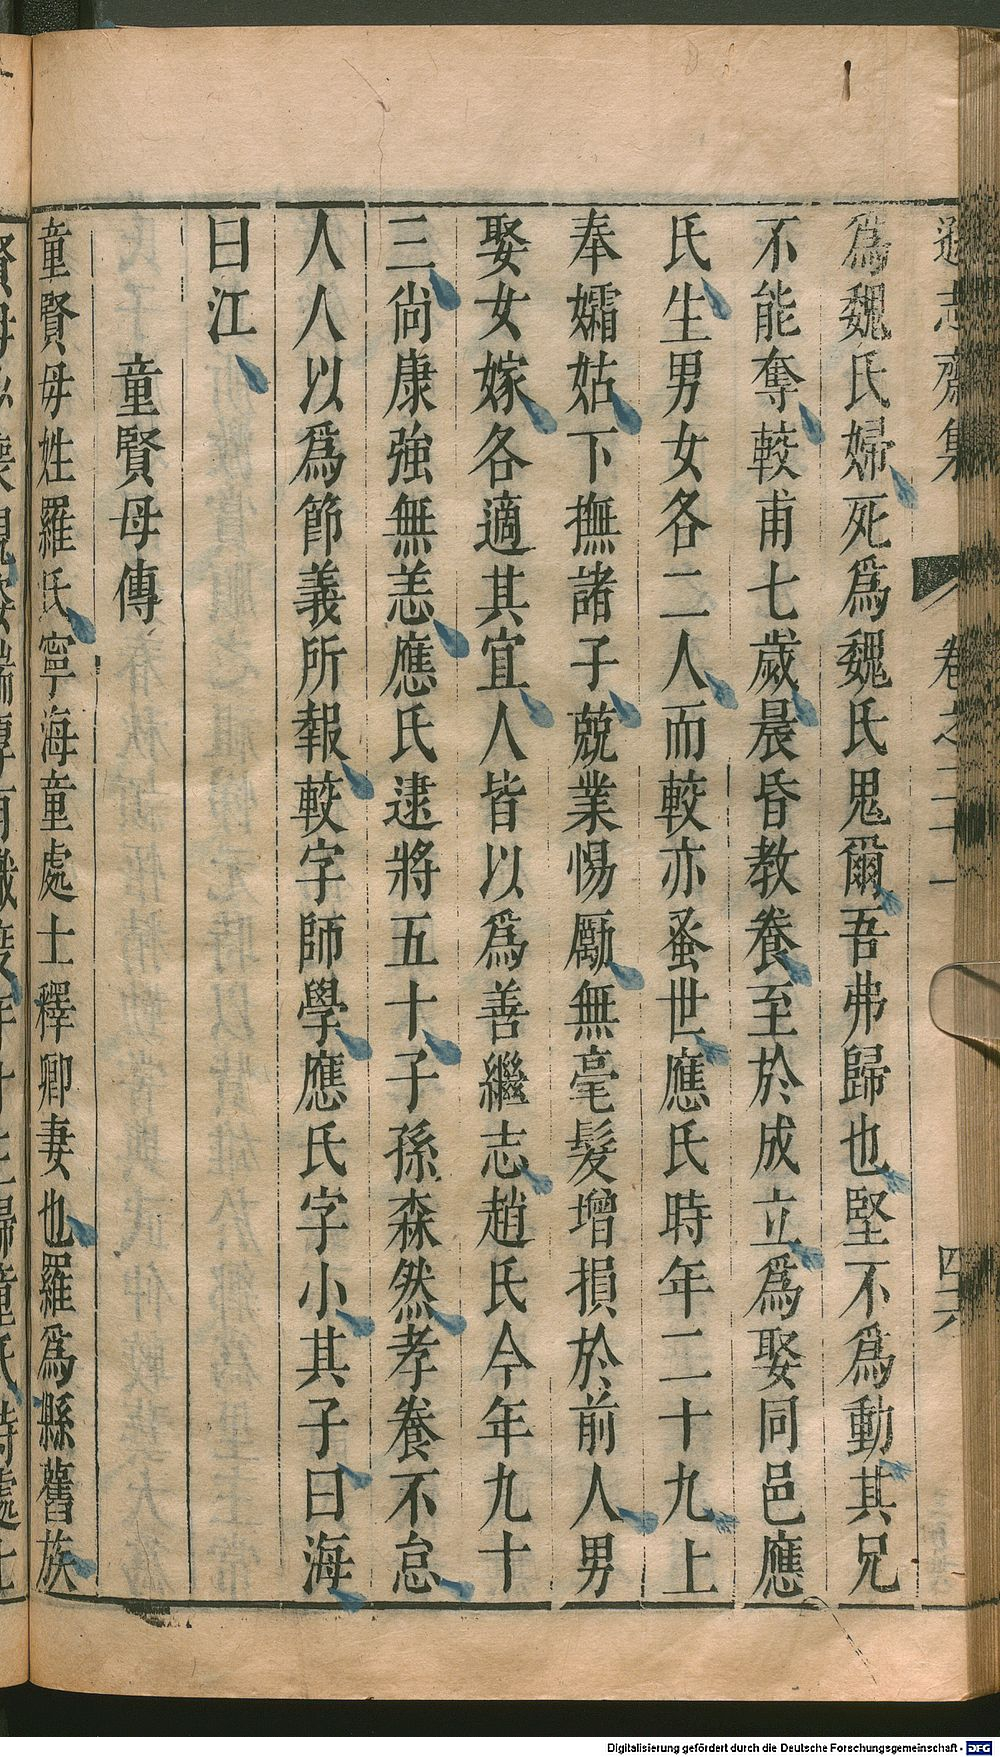 遜志齋集 卷之二十一 四六
爲魏氏婦死爲魏氏鬼爾吾弗歸也堅不爲動其兄
不能奪較甫七歲晨昏教養至於成立爲娶同邑應
氏生男女各二人而較亦蚤世應氏時年二十九上
奉孀姑下撫諸子兢業惕厲無毫髮增損於前人男
娶女嫁各適其宜人皆以爲善繼志趙氏今年九十
三尙康強無恙應氏逮將五十子孫森然孝養不怠
人人以爲節義所報較字師學應氏字小其子曰海
曰江
童賢母傳
童賢母姓羅氏寧海童處士釋卿妻也羅爲縣舊族
Digitalisierung gefördert durch die Deutsche Forschungsgemeinschaft - DFG